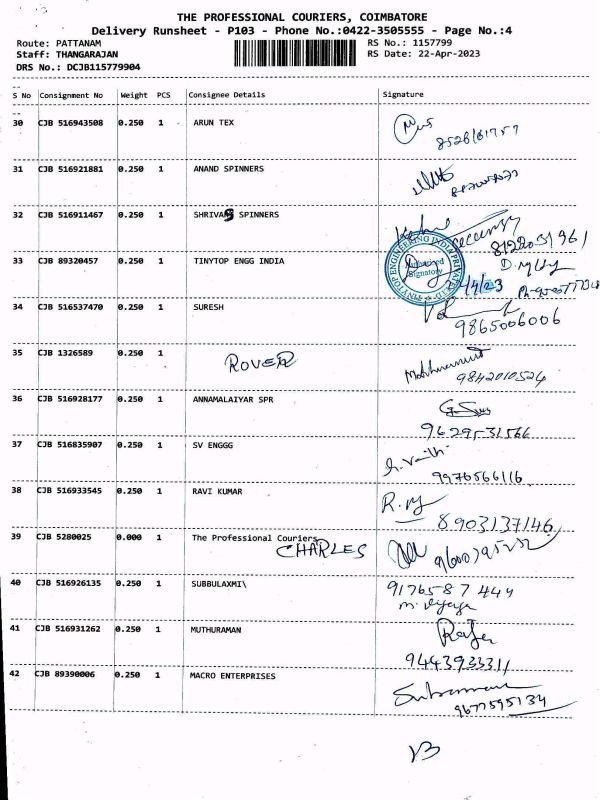 THE PROFESSIONAL COURIERS, COIMBATORE
Delivery Runsheet - P103 - Phone No.:0422-3505555 - Page No.:4
Route: PATTANAM RS No.: 1157799
Staff: THANGARAJAN RS Date: 22-Apr-2023
DRS No.: DCJB115779904
S No Consignment No Weight PCS Consignee Details Signature
30 CJB 516943508 0.250 1 ARUN TEX
31 CJB 516921881 0.250 1 ANAND SPINNERS
32 CJB 516911467 0.250 1 SHRIVAS SPINNERS
33 CJB 89320457 0.250 1 TINYTOP ENGG INDIA
TINYTOP ENGINEERING INDIA PRIVATE LTD
Authorised
Signatory
34 CJB 516537470 0.250 1 SURESH
9865006006
35 CJB 1326589 0.250 1 ROVER
9842010524
36 CJB 516928177 0.250 1 ANNAMALAIYAR SPR
9629531566
37 CJB 516835907 0.250 1 SV ENGGG
9976566116
38 CJB 516933545 0.250 1 RAVI KUMAR
8903137146
39 CJB 5280025 0.000 1 The Professional Couriers
CHARLES
40 CJB 516926135 0.250 1 SUBBULAXMI\
9176587444
41 CJB 516931262 0.250 1 MUTHURAMAN
9443933311
42 CJB 89390006 0.250 1 MACRO ENTERPRISES
9677595134